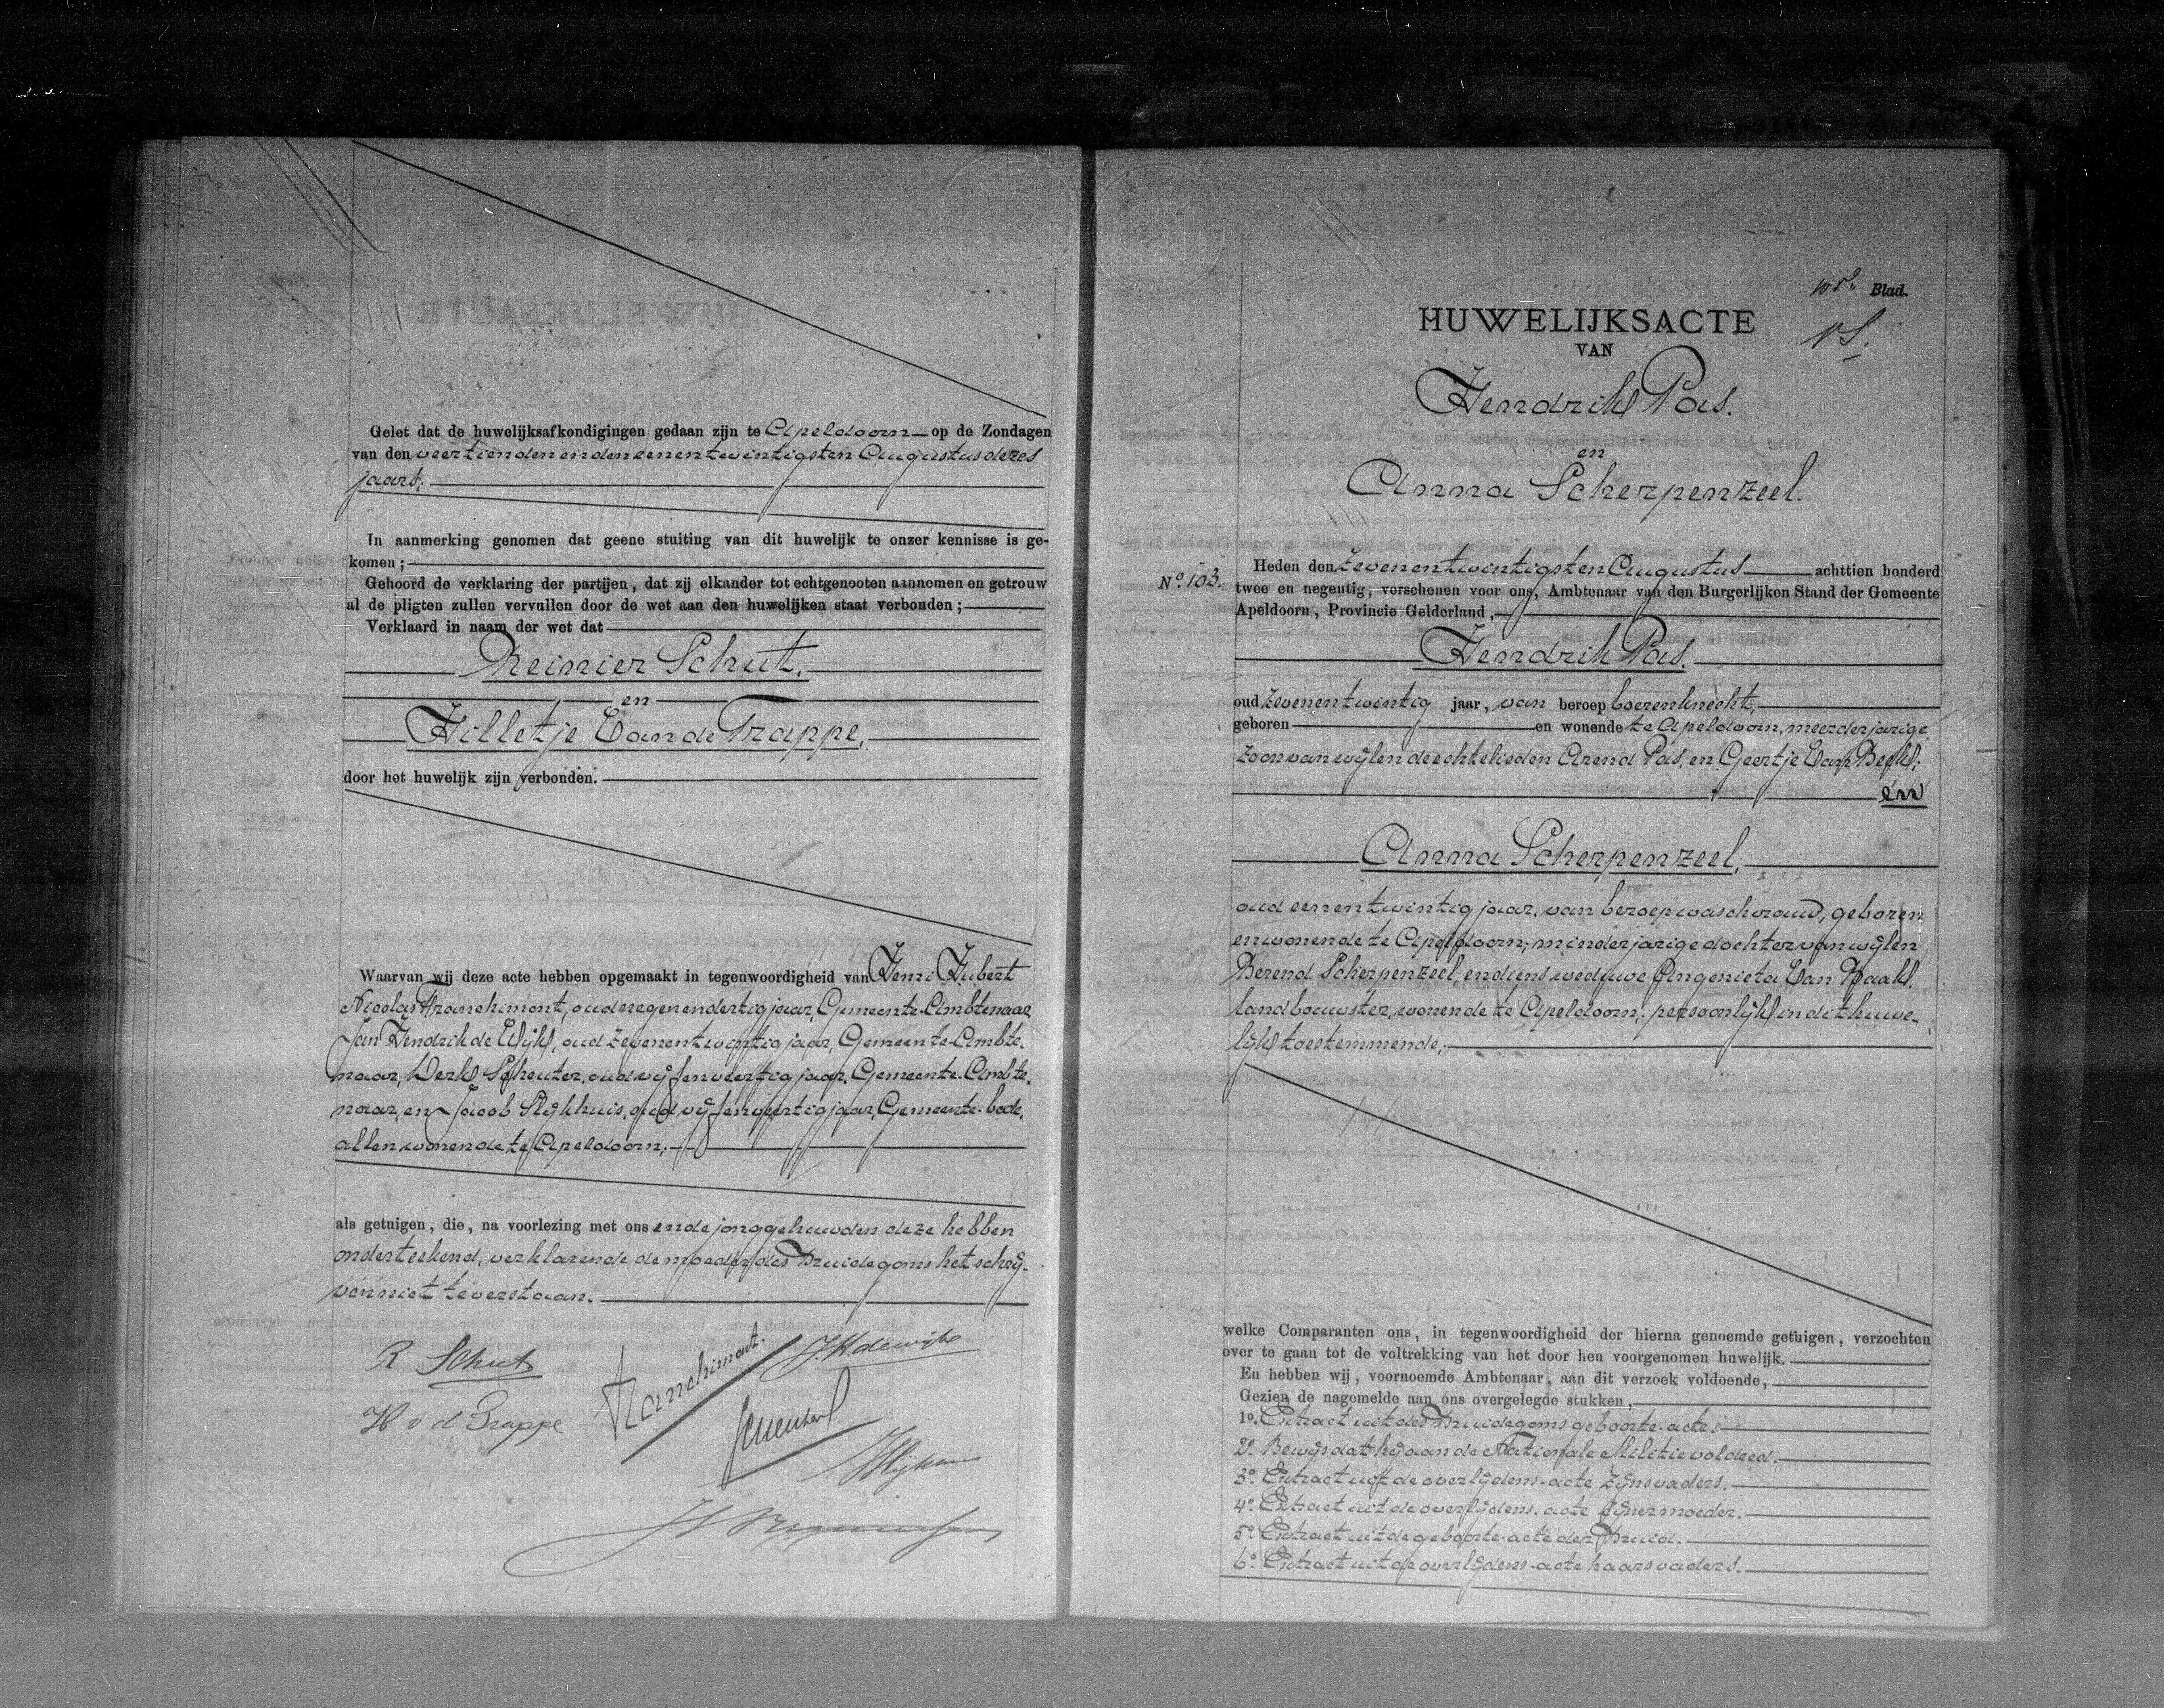 Gelet dat de huwelijksafkondigingen gedaan zijn te Apeldoorn op de Zondagen
van den veertienden en den eenentwintigsten Augustus dezes
jaars;
In aanmerking genomen dat geene stuiting van dit huwelijk te onzer kennisse is ge-
komen;
Gehoord de verklaring der partijen, dat zij elkander tot echtgenooten aannemen en getrouw
al de pligten zullen vervullen door de wet aan den huwelijken staat verbonden;
Verklaard in naam der wet dat
Reinier Schut.
en
Hilletje Van de Trappe,
door het huwelijk zijn verbonden.
Waarvan wij deze acte hebben opgemaakt in tegenwoordigheid van Henri Hubert
Nicolas Franchimont, oud negenendertig jaar, Gemeente-Ambtenaar,
Jan Hendrik de Wijk, oud zevenentwintig jaar, Gemeente-Ambte-
naar, Derk Scheuter, oud vijfenveertig jaar, Gemeente-Ambte-
naar, en Jacob Slijkhuis, oud vijfenveertig jaar, Gemeente-bode,
allen wonende te Apeldoorn,
als getuigen, die, na voorlezing met ons en de jonggehuwden deze hebben
onderteekend, verklarende de moeder des Bruidegoms het schrij-
ven niet te verstaan.
R Schut
Franchimont.
J.H. de Wijk
H v d Trappe
HUWELIJKSACTE
VAN
Blad.
Hendrik Pas.
en
Anna Scherpenzeel.
No. 103.
Heden den zevenentwintigsten Augustus achttien honderd
twee en negentig, verschenen voor ons, Ambtenaar van den Burgerlijken Stand der Gemeente
Apeldoorn, Provincie Gelderland,
Hendrik Pas.
oud zevenentwintig jaar, van beroep boerenknecht,
geboren en wonende te Apeldoorn, meerderjarige
zoon van wijlen de echtelieden Arend Pas, en Geertje Van Beek;
en
Anna Scherpenzeel,
oud eenentwintig jaar, van beroep waschvrouw, geboren
en wonende te Apeldoorn, minderjarige dochter van wijlen
Berend Scherpenzeel, en diens weduwe Angenieta Van Raak,
landbouwster, wonende te Apeldoorn, persoonlijk in dit huwe-
lijk toestemmende;
welke Comparanten ons, in tegenwoordigheid der hierna genoemde getuigen, verzochten
over te gaan tot de voltrekking van het door hen voorgenomen huwelijk.
En hebben wij, voornoemde Ambtenaar, aan dit verzoek voldoende,
Gezien de nagemelde aan ons overgelegde stukken,
1o. Extract uit des Bruidegoms geboorte-acte.
2o. Bewijs dat hij aan de Nationale Militie voldeed.
3o. Extract uit de overlijdens-acte zijns vaders.
4o. Extract uit de overlijdens-acte zijner moeder.
5o. Extract uit de geboorte-acte der Bruid.
6o. Extract uit de overlijdens-acte haars vaders.